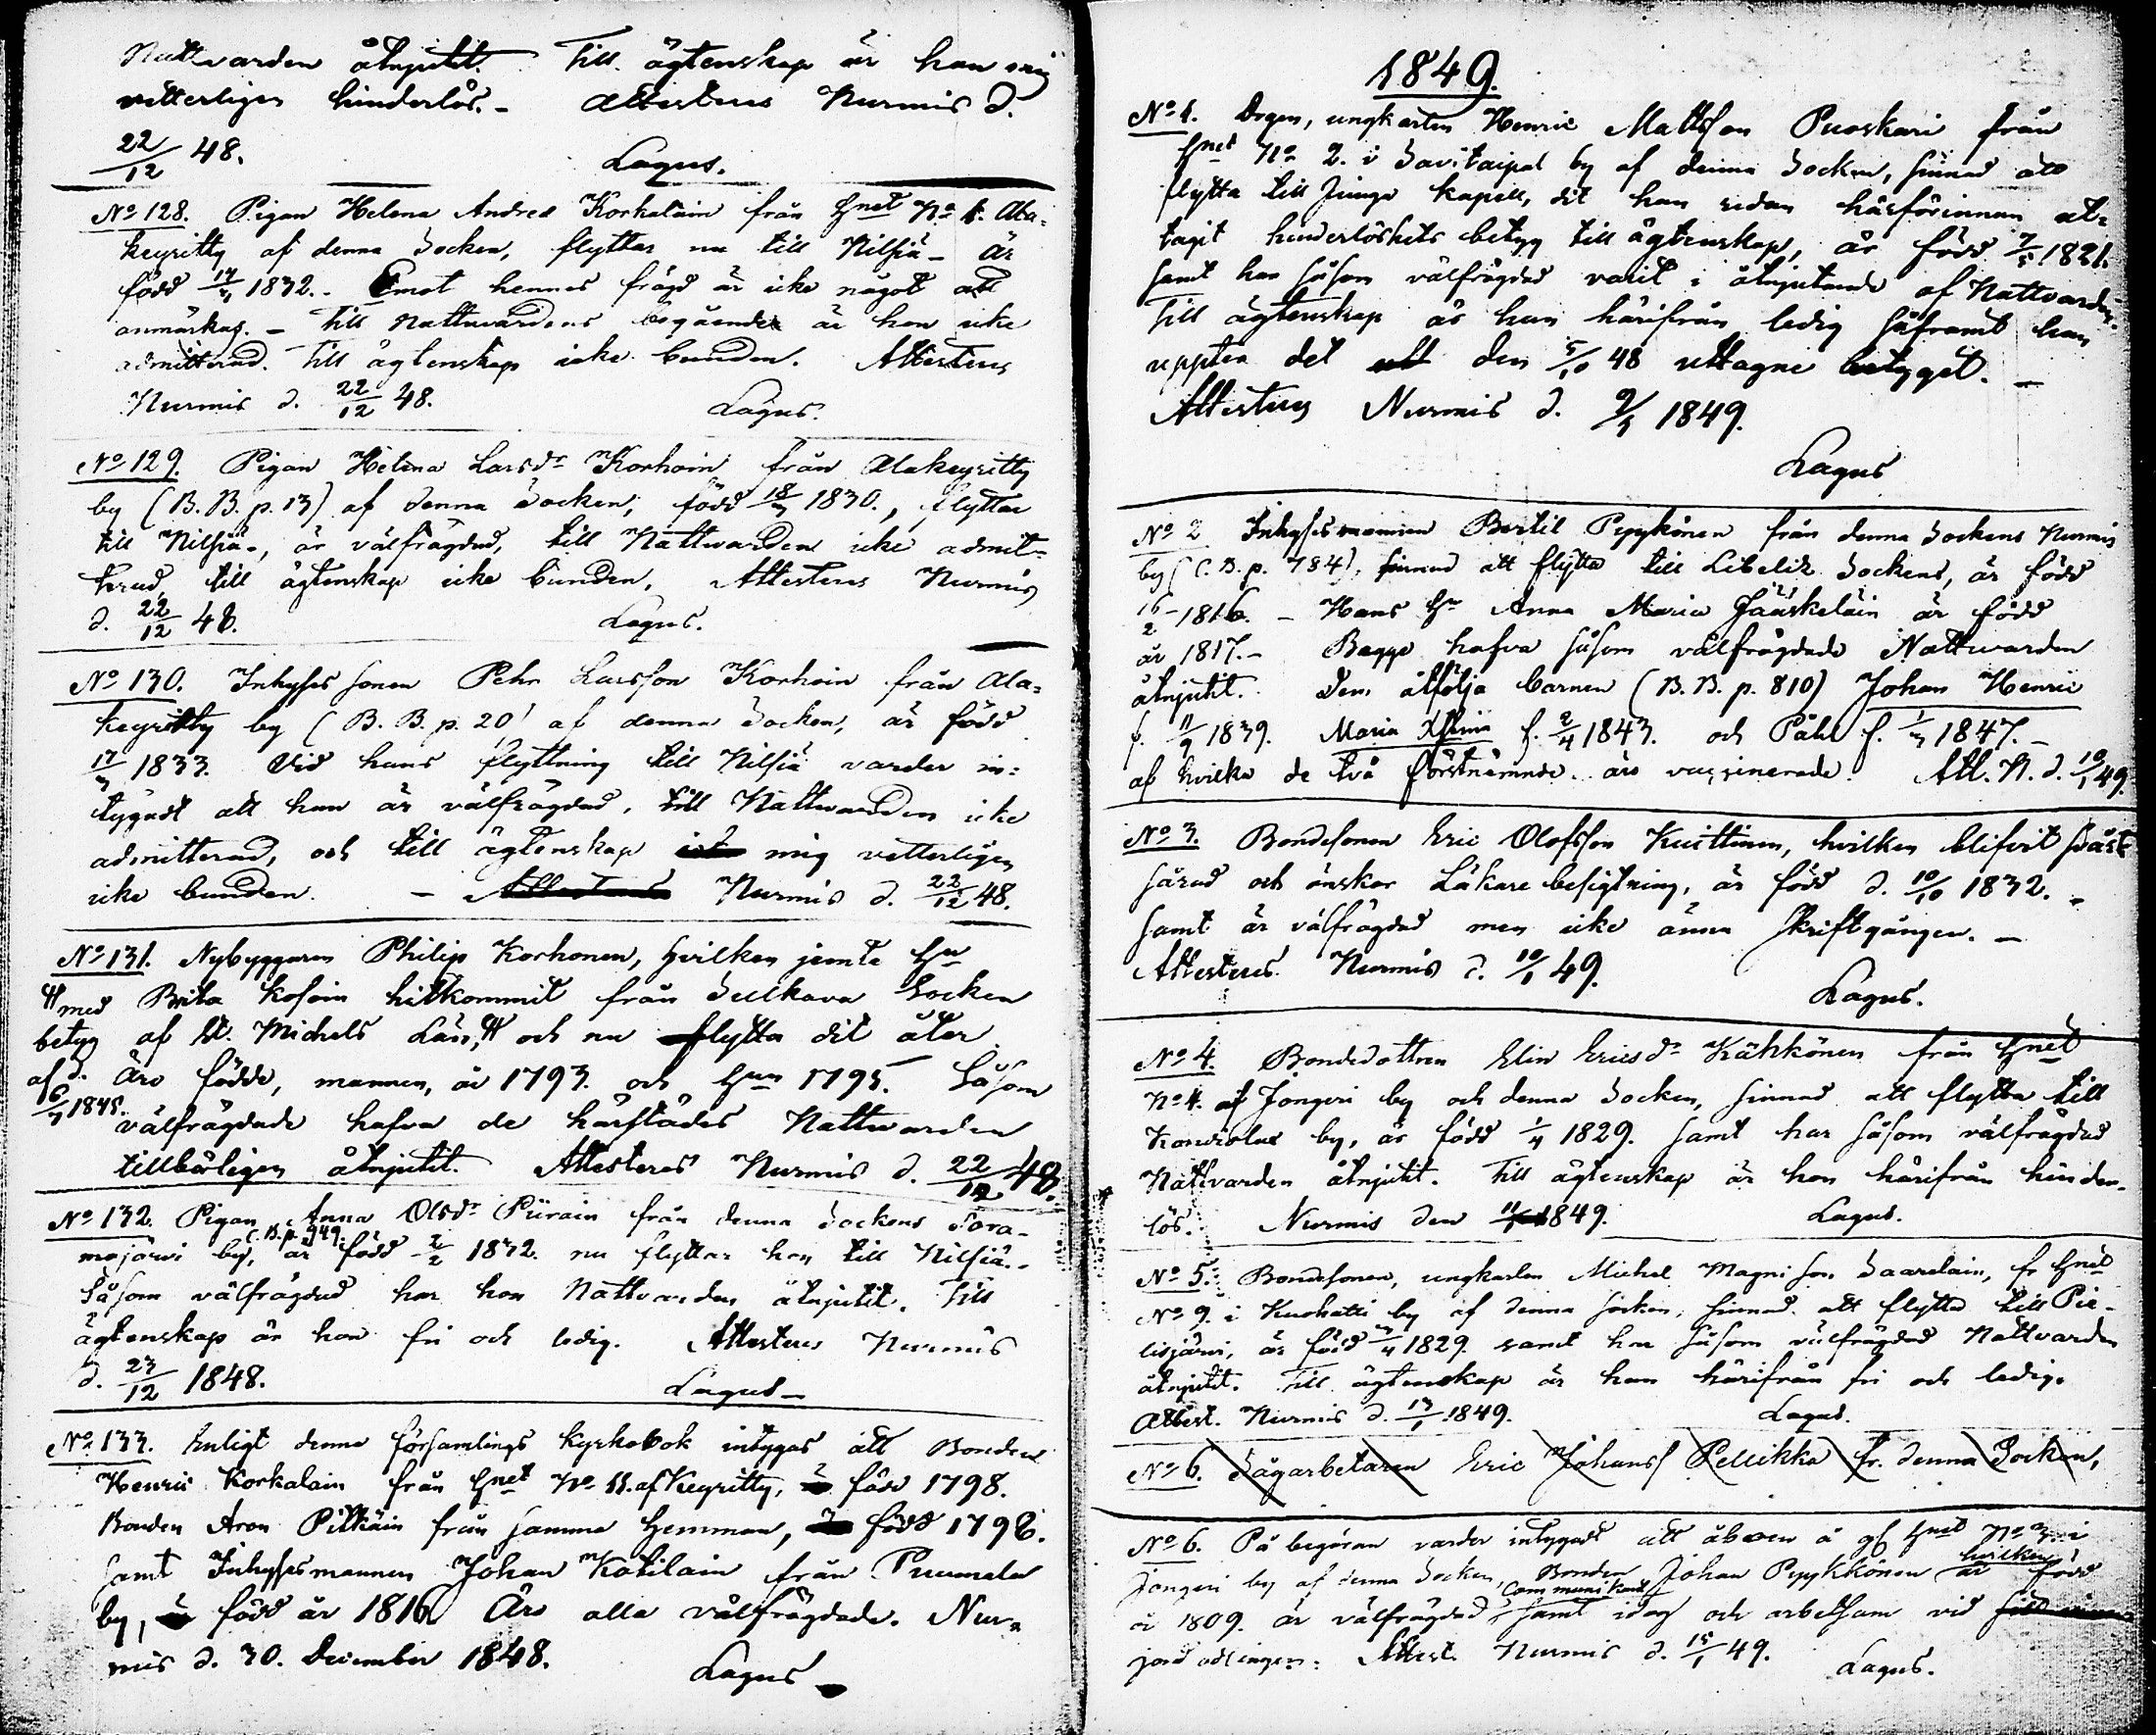 Nattvarden åtnjutit. Till ägtenskap är han mig
vetterligen hinderlös. - Attesteras Nurmis d.
22/12 48. Lagus.
No 128. Pigan Helena Andersd Korkalain från Hmet No 1. Ala-
keyritty af denna Socken, flyttar nu till Nilsiä - är
född 1832. - Emot hennes frägd är icke något att
anmärkas. - Till Nattvardens begående är hon icke
admitterad. Till ägtenskap icke bunden. Attesteras
Nurmis d. 22/12 48. Lagus.
No 129. Pigan Helena Larsdr Korhoin från Alakeyritty
by (B. B. p. 13) af denna Socken, född 18/3 1830., flyttar
till Nilsiä -, är välfrägdad, till Nattvarden icke admit-
terad, till ägtenskap icke bunden. Attesteras Nurmis
d. 22/12 48. Lagus.
No 130. Inhyses sonen Pehr Larsson Korhoin från Ala-
keyritty by (B. B. p. 20) af denna Socken, är född
17/3 1833. Vid hans flyttning till Nilsiä varder in-
tygadt att han är välfrägdad, till Nattvarden icke
admitterad, och till ägtenskap mig vetterligen
icke bunden. - Nurmis d. 22/12 48.
No 131. Nybyggaren Philip Korhonen, hvilken jemte Hu
med Brita Kosoin hitkommit från Sulkava Socken
betyg af St. Michels Län, och nu flytta dit åter.
af d. Äro födde, mannen, år 1793. och Hun 1795. Såsom
6/3 1845. välfrägdade hafva de härstädes Nattvarden
tillbörligen åtnjutit. Attesteras Nurmis d. 22/12 48.
No 132. Pigan Anna Olsdr Piirain från denna Sockens Sora-
C. B. p. 949.
majärvi by, är född 2/2 1832. nu flyttar hon till Nilsiä. -
Såsom välfrägdad har hon Nattvarden åtnjutit. Till
ägtenskap är hon fri och ledig. Attesteras Nurmis
d. 23/12 1848. Lagus -
No 133. Enligt denna församlings kyrkobok intygas att Bonden
Henric Korkalain från Hmet No 11. af Keyritty, född 1798.
Bonden Aron Pitkäin från samma Hemman, född 1796.
samt Inhysesmannen Johan Kotilain från Puumala
by, född år 1816. Äro alla välfrägdade. Nur-
mis d. 30. December 1848. Lagus
1849.
No 1. Drgen, ungkarlen Henric Mattsson Puoskari från
Hmet No 2. i Savitaipal by af denna Socken, sinnad att
flytta till Jungo kapell, dit han redan härförinnan ut-
tagit hinderlöshets betyg till ägtenskap, är född 1821.
samt har såsom välfrägdad varit i åtnjutande af Nattvarden.
Till ägtenskap är han härifrån ledig såframt han
uppter det den 5/10 48 uttagne betyget. -
Attesteras Nurmis d. 9/1 1849.
Lagus
No 2 Inhysesmannen Bertil Pyykönen från denna Sockens Nurmis
by (C. B. p. 784), sinnad att flytta till Libelitz Sockens, är född
16/2 1816. - Hans Hu Anna Maria Jääskeläin är född
år 1817. - Bägge hafva såsom välfrägdade Nattvarden
åtnjutit. Dem åtfölja barnen (B. B. p. 810) Johan Henric
f. 11/9 1839. Maria Xstina f. 2/4 1843. och Påhl f. 1/3 1847. -
af hvilka de två förstnämnde äro vaccinerade. Att. N. d. 10/1 49.
No 3. Bondesonen Eric Olofsson Kuittinen, hvilken blifvit svårt
sårad och önskar Läkare besigtning, är född d. 10/10 1832. -
samt är välfrägdad men icke ännu skriftgången. -
Attesteras Nurmis d. 10/1 49.
Lagus.
No 4. Bondedottren Elin Ericsdr Kähkönen från Hmet
No 4. af Jongeri by och denna Socken, sinnad att flytta till
by, är född 1/4 1829. samt har såsom välfrägdad
Nattvarden åtnjutit. Till ägtenskap är hon härifrån hinder-
lös. Nurmis den 11/1 1849. Lagus.
No 5. Bondesonen, ungkarlen Michel Magni son Saarelain, fr Hmet
No 9. i Kuohatti by af denna socken, sinnad att flytta till Pie-
lisjärvi, är född 3/4 1829. samt har såsom välfrägdad Nattvarden
åtnjutit. Till ägtenskap är han härifrån fri och ledig.
Attest. Nurmis d. 13/1 1849. Lagus.
No 6. Sågarbetaren Eric Johanss Pellikka fr. denna Socken,
No 6. På begäran varder intygadt att åboen å Hmet No 3. i
hvilken
Jongeri by af denna Socken, Bonden Johan Pyykkönen är född
Communikant
år 1809. är välfrägdad, samt idog och arbetsam vid
jordodlingen. Attest. Nurmis d. 15/1 49. Lagus.